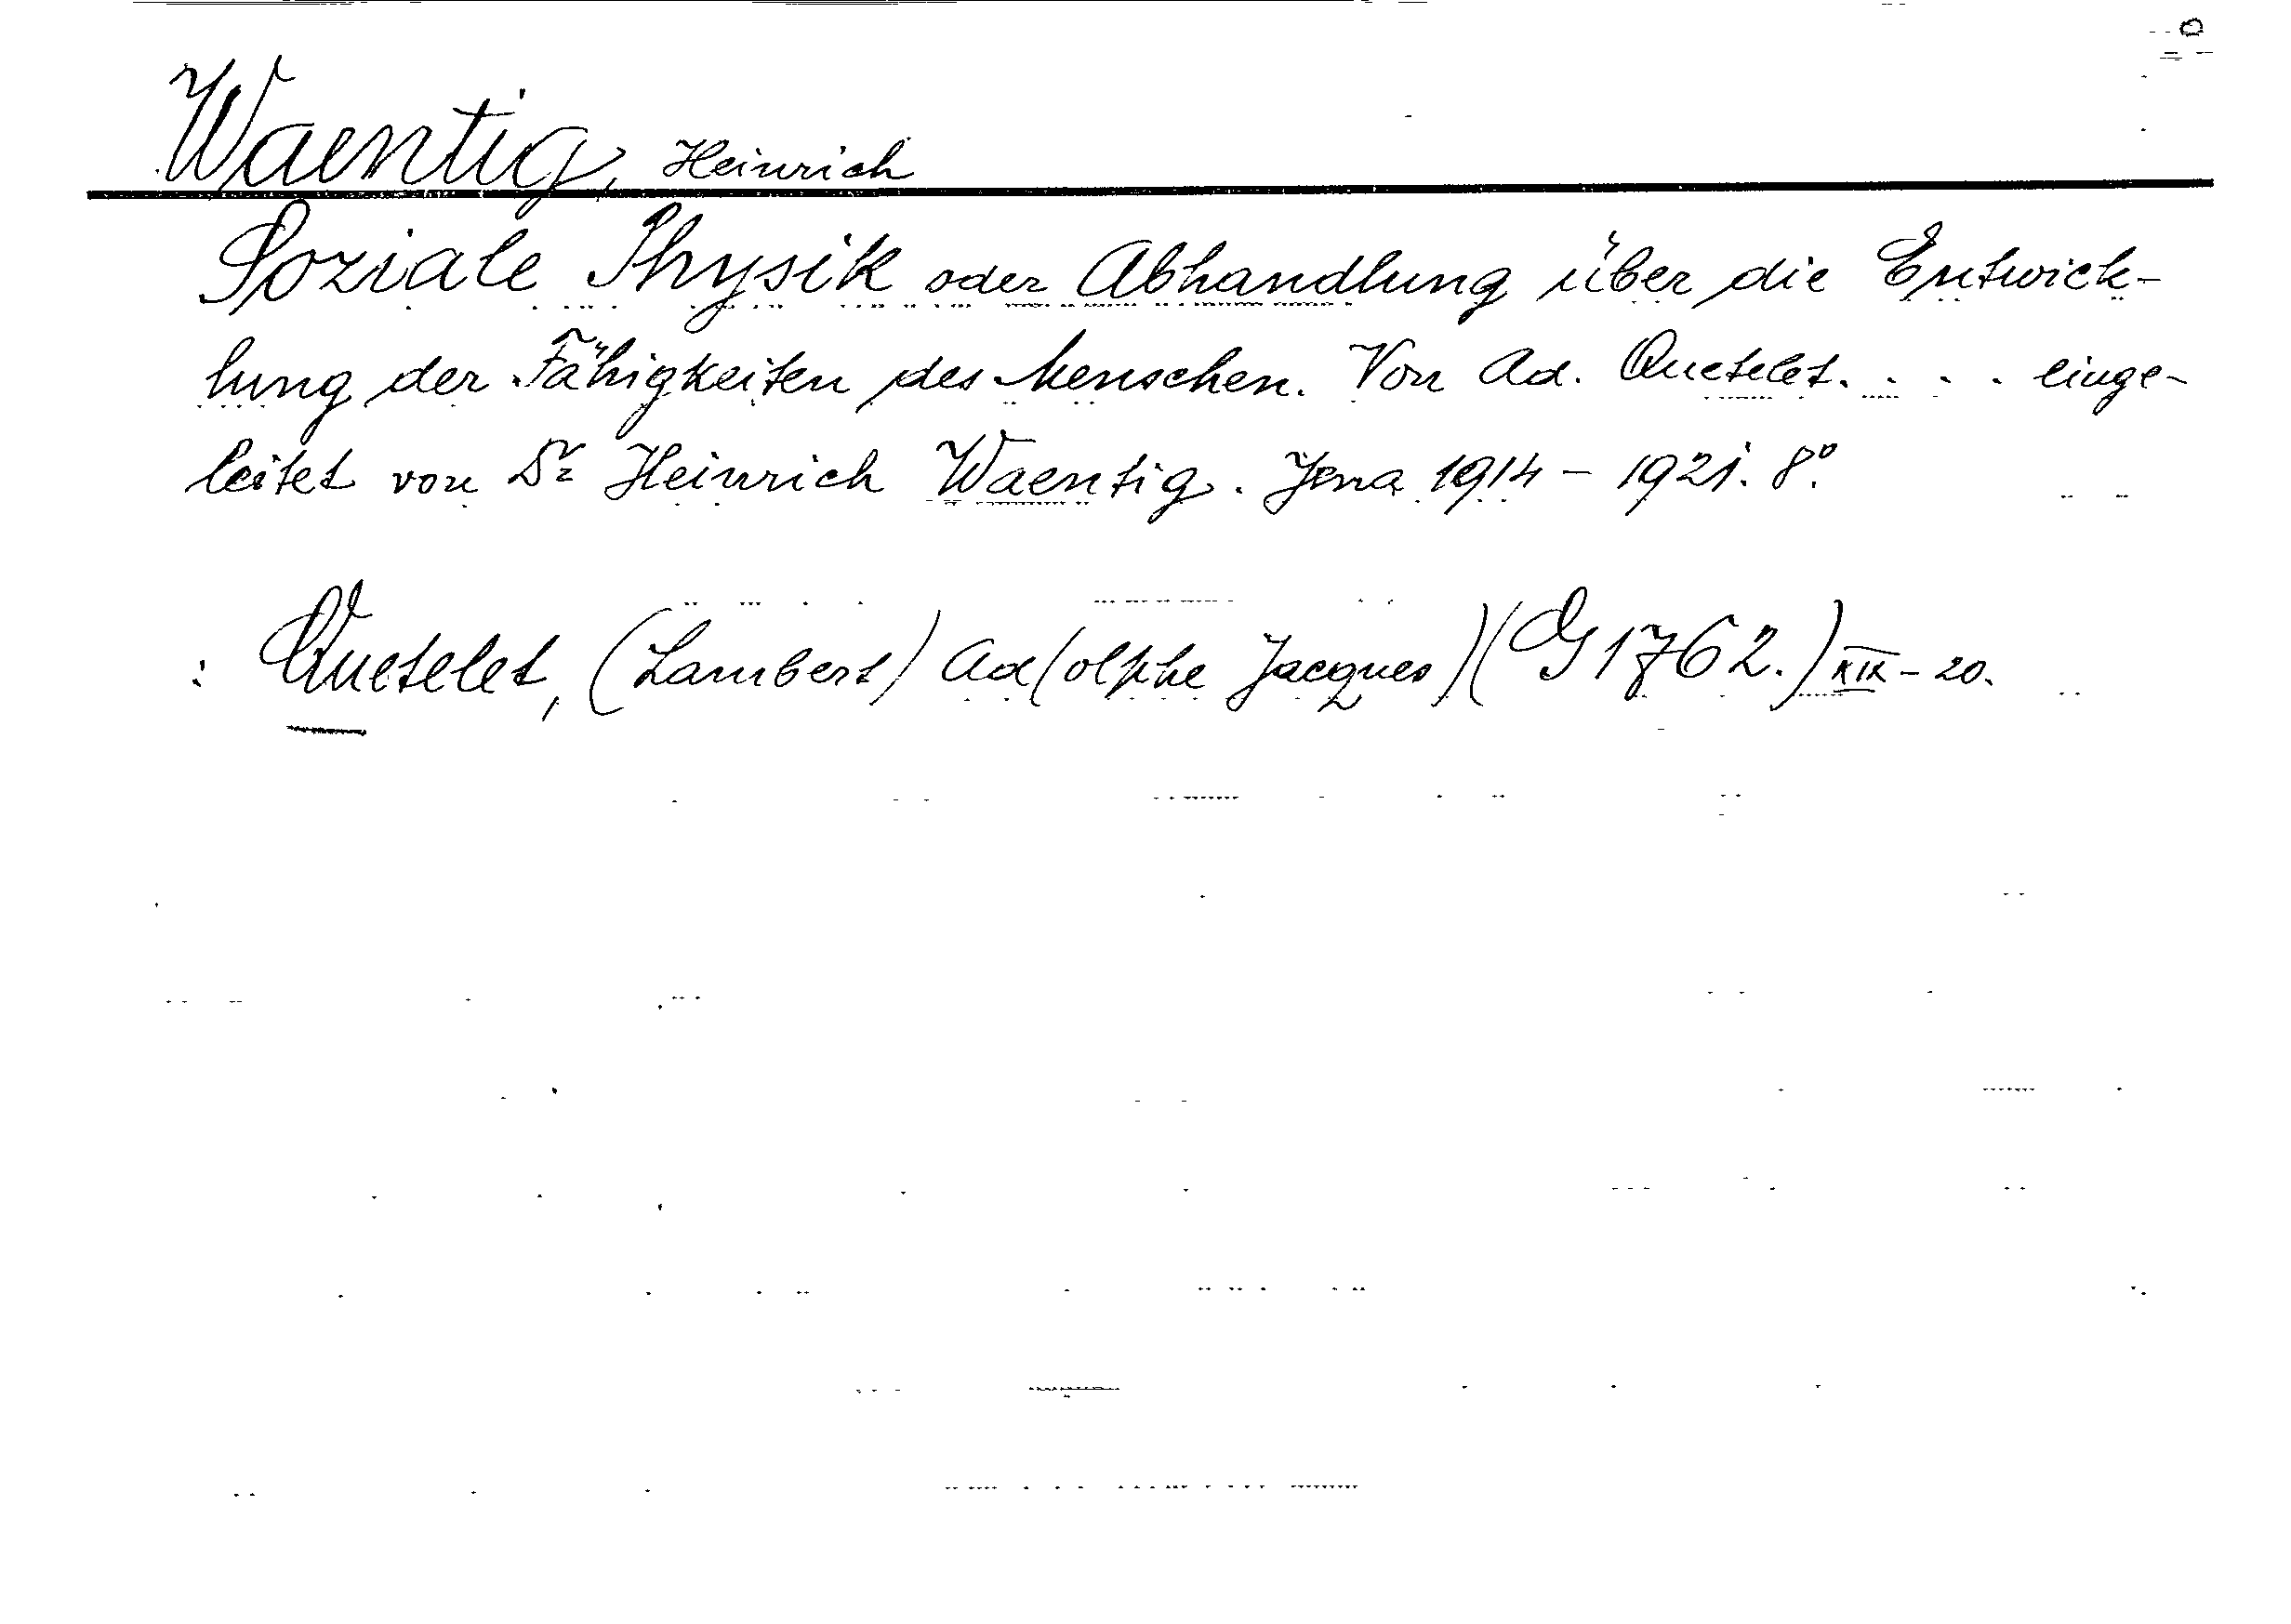 Waentig, Heinrich
Soziale Physik oder Abhandlung über die Entwick-
lung der Fähigkeiten des Menschen. Von Ad. Quetelet. . . . einge-
leitet von Dr Heinrich Waentig. Jena 1914 - 1921. 8°.
: Quetelet, (Lambert) Ad(olphe Jacques) (G 1762.) XIX - 20.